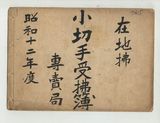 在地拂
小切手受拂簿
專賣局
昭和十二年度